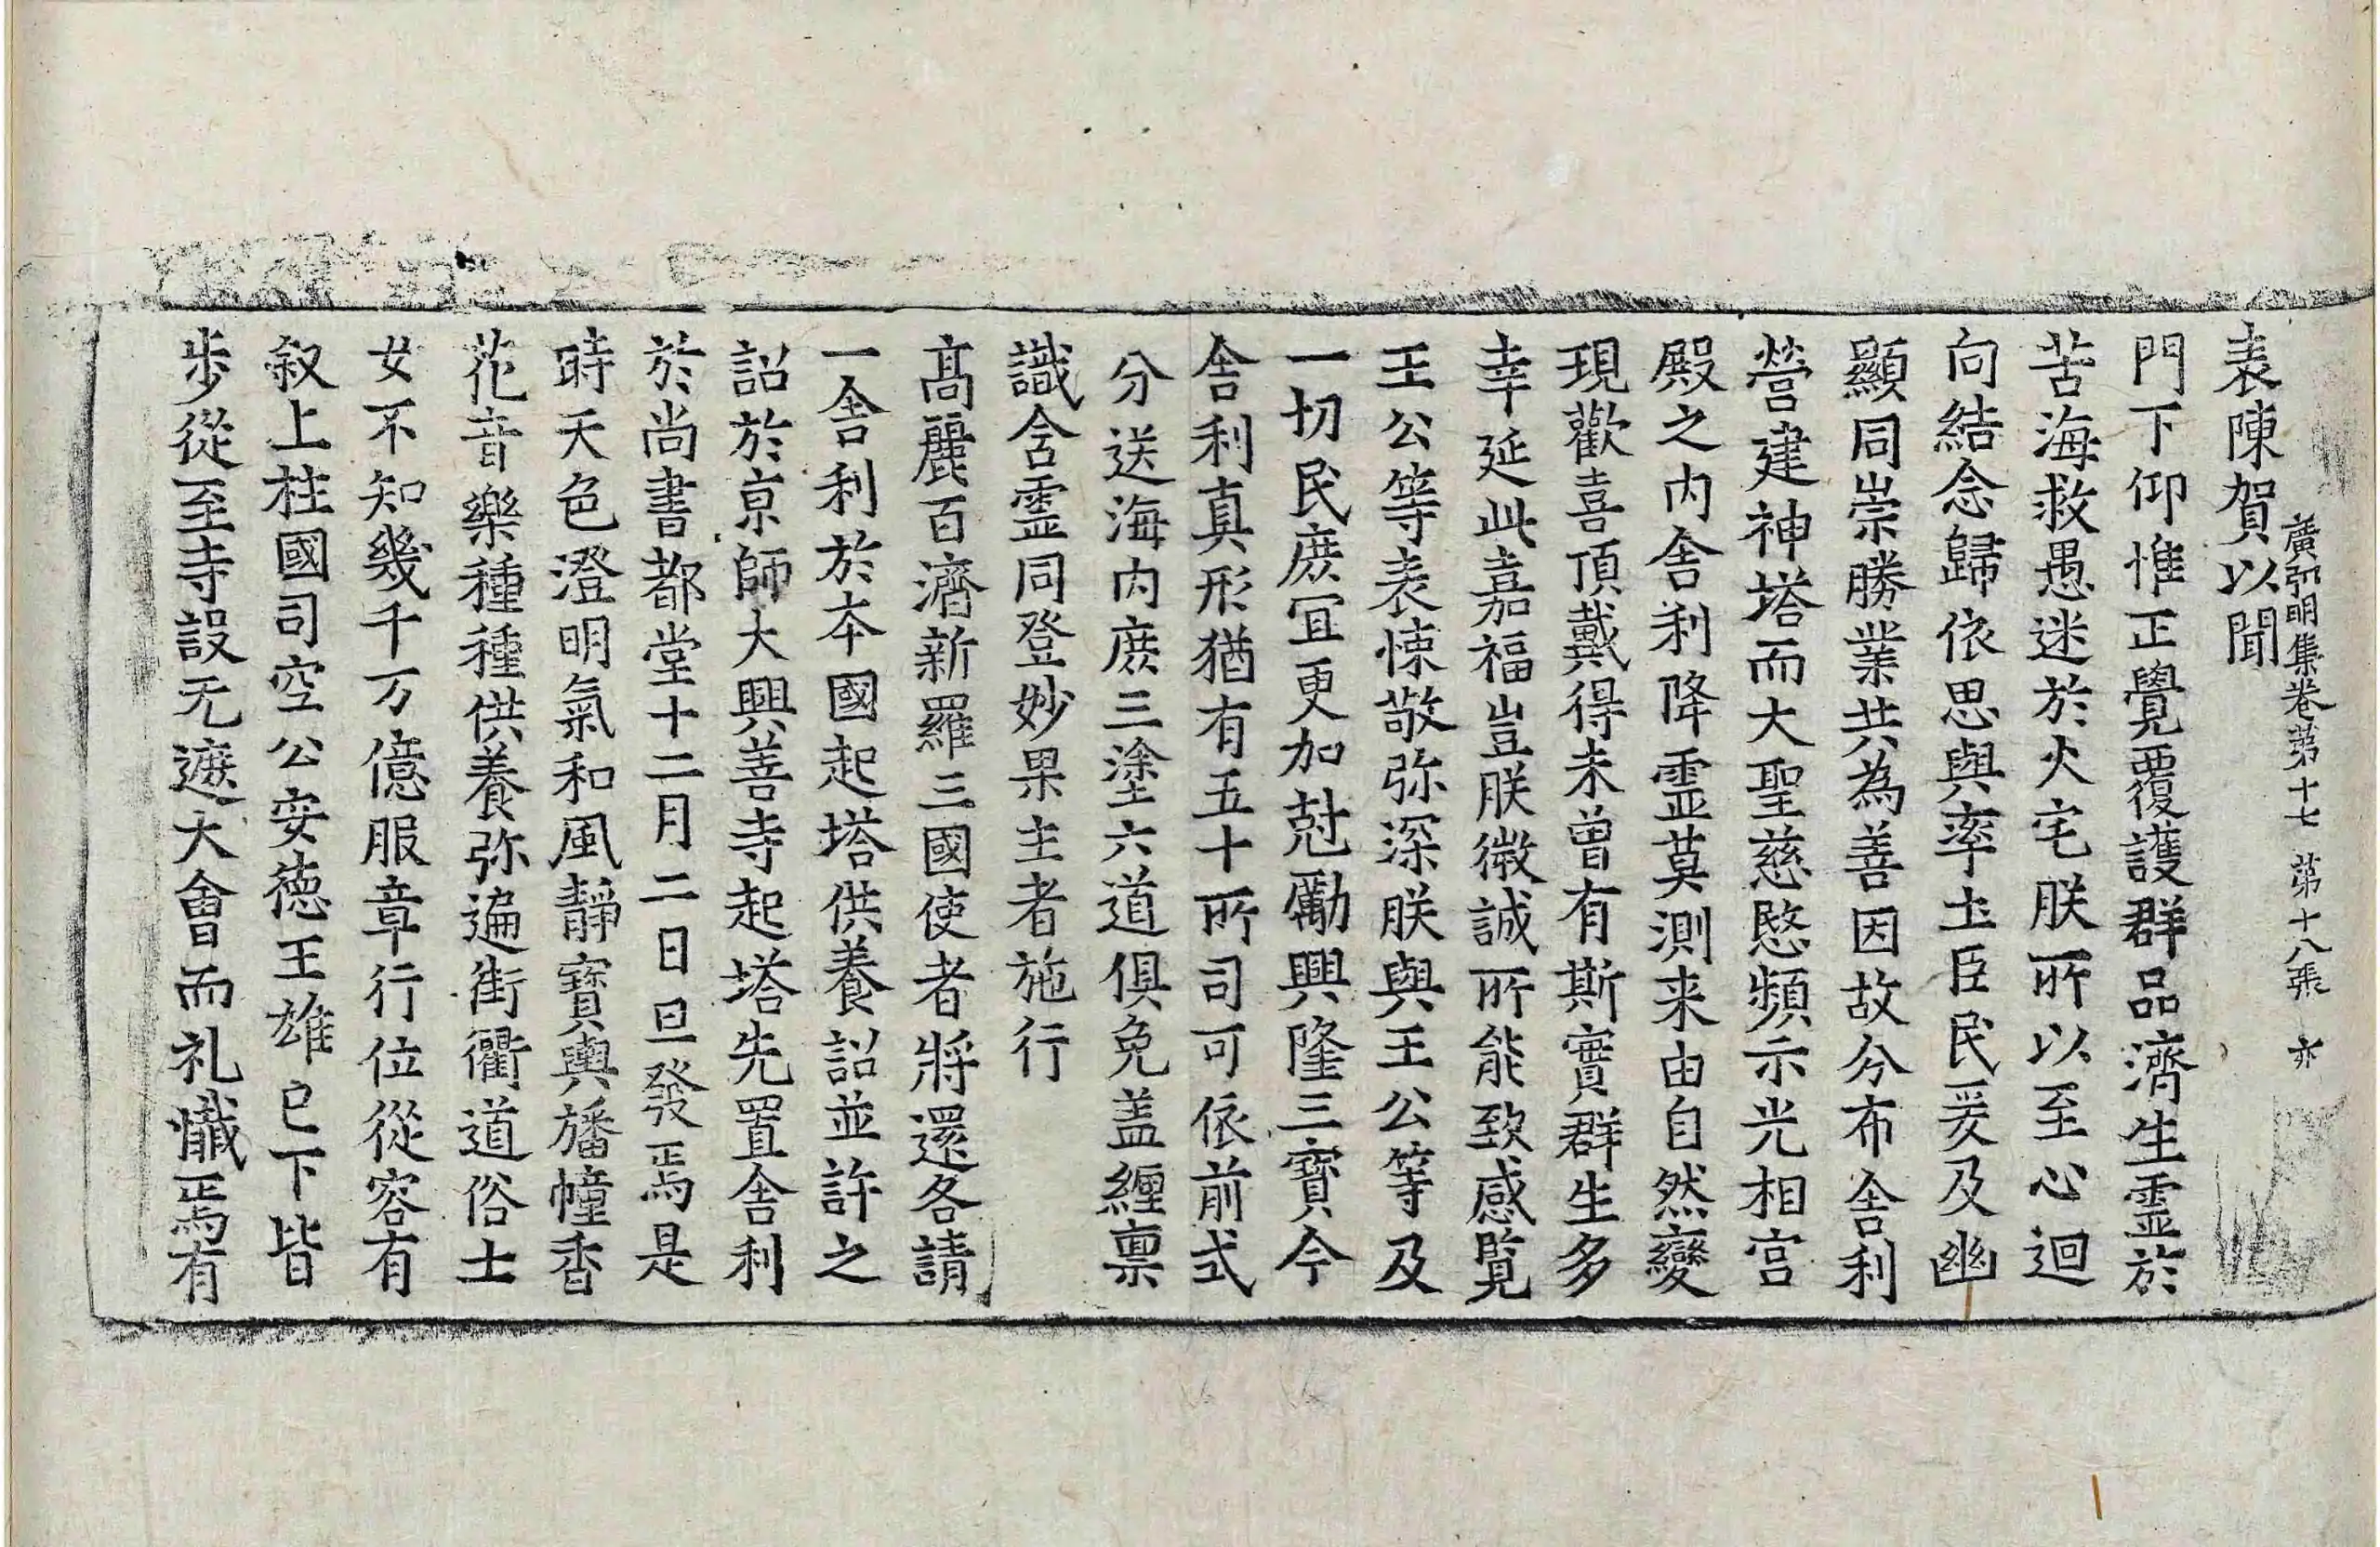 廣弘明集卷第十七 第十八張 亦
表陳賀以聞
門下仰惟正覺覆護群品濟生霊於
苦海救愚迷於火宅朕所以至心迴
向結念歸依思與率土臣民爰及幽
顯同崇勝業共為善因故分布舍利
營建神塔而大聖慈愍頻示光相宮
殿之内舍利降霊莫測来由自然變
現歡喜頂戴得未曾有斯實群生多
幸延此嘉福豈朕微誠所能致感覧
王公等表悚敬弥深朕與王公等及
一切民庶冝更加尅勵興隆三寶今
舍利真形猶有五十所司可依前式
分送海内庶三塗六道俱免盖纏禀
識含霊同登妙果主者施行
髙麗百濟新羅三國使者將還各請
一舍利於本國起塔供養詔並許之
詔於京師大興善寺起塔先置舍利
於尚書都堂十二月二日旦發焉是
時天色澄明氣和風靜寶輿旛幢香
花音樂種種供養弥遍街衢道俗士
女不知幾千万億服章行位從容有
叙上柱國司空公安德王雄已下皆
步從至寺設无遮大會而礼懺焉有